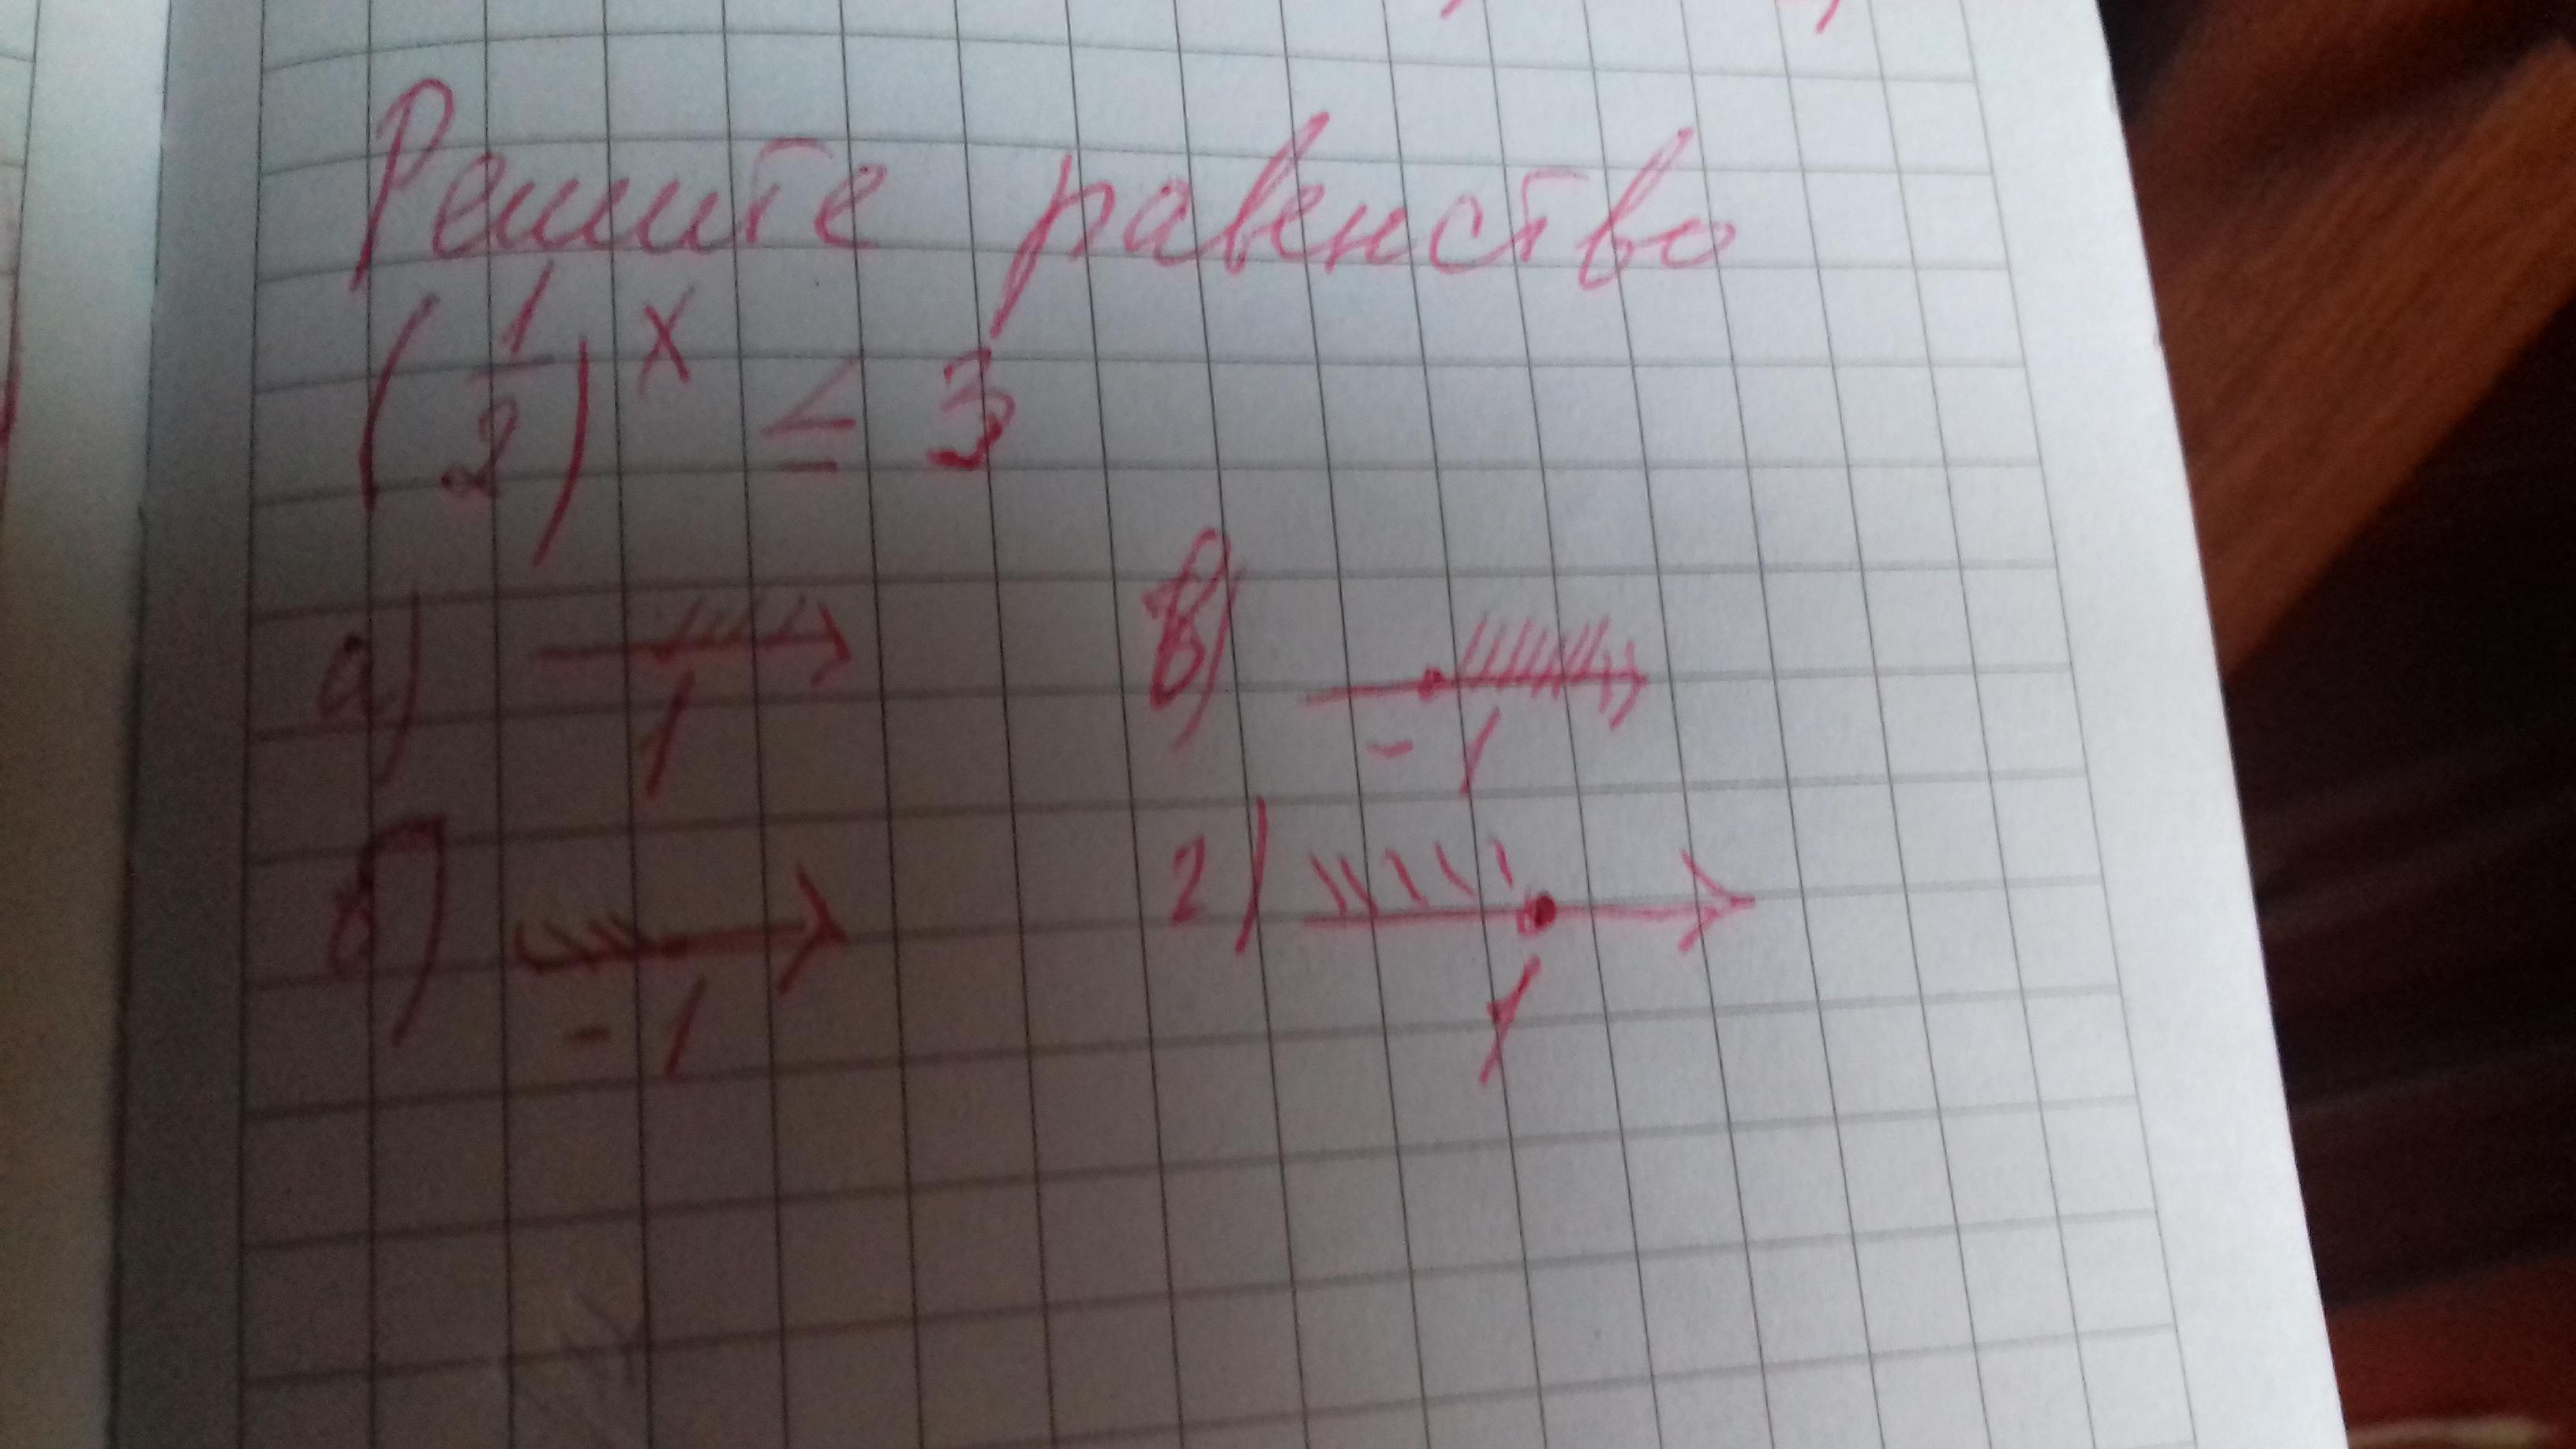 Решите равенство
(1/2)^x ≤ 3
а) 1
в) -1
б) -1
г) 1